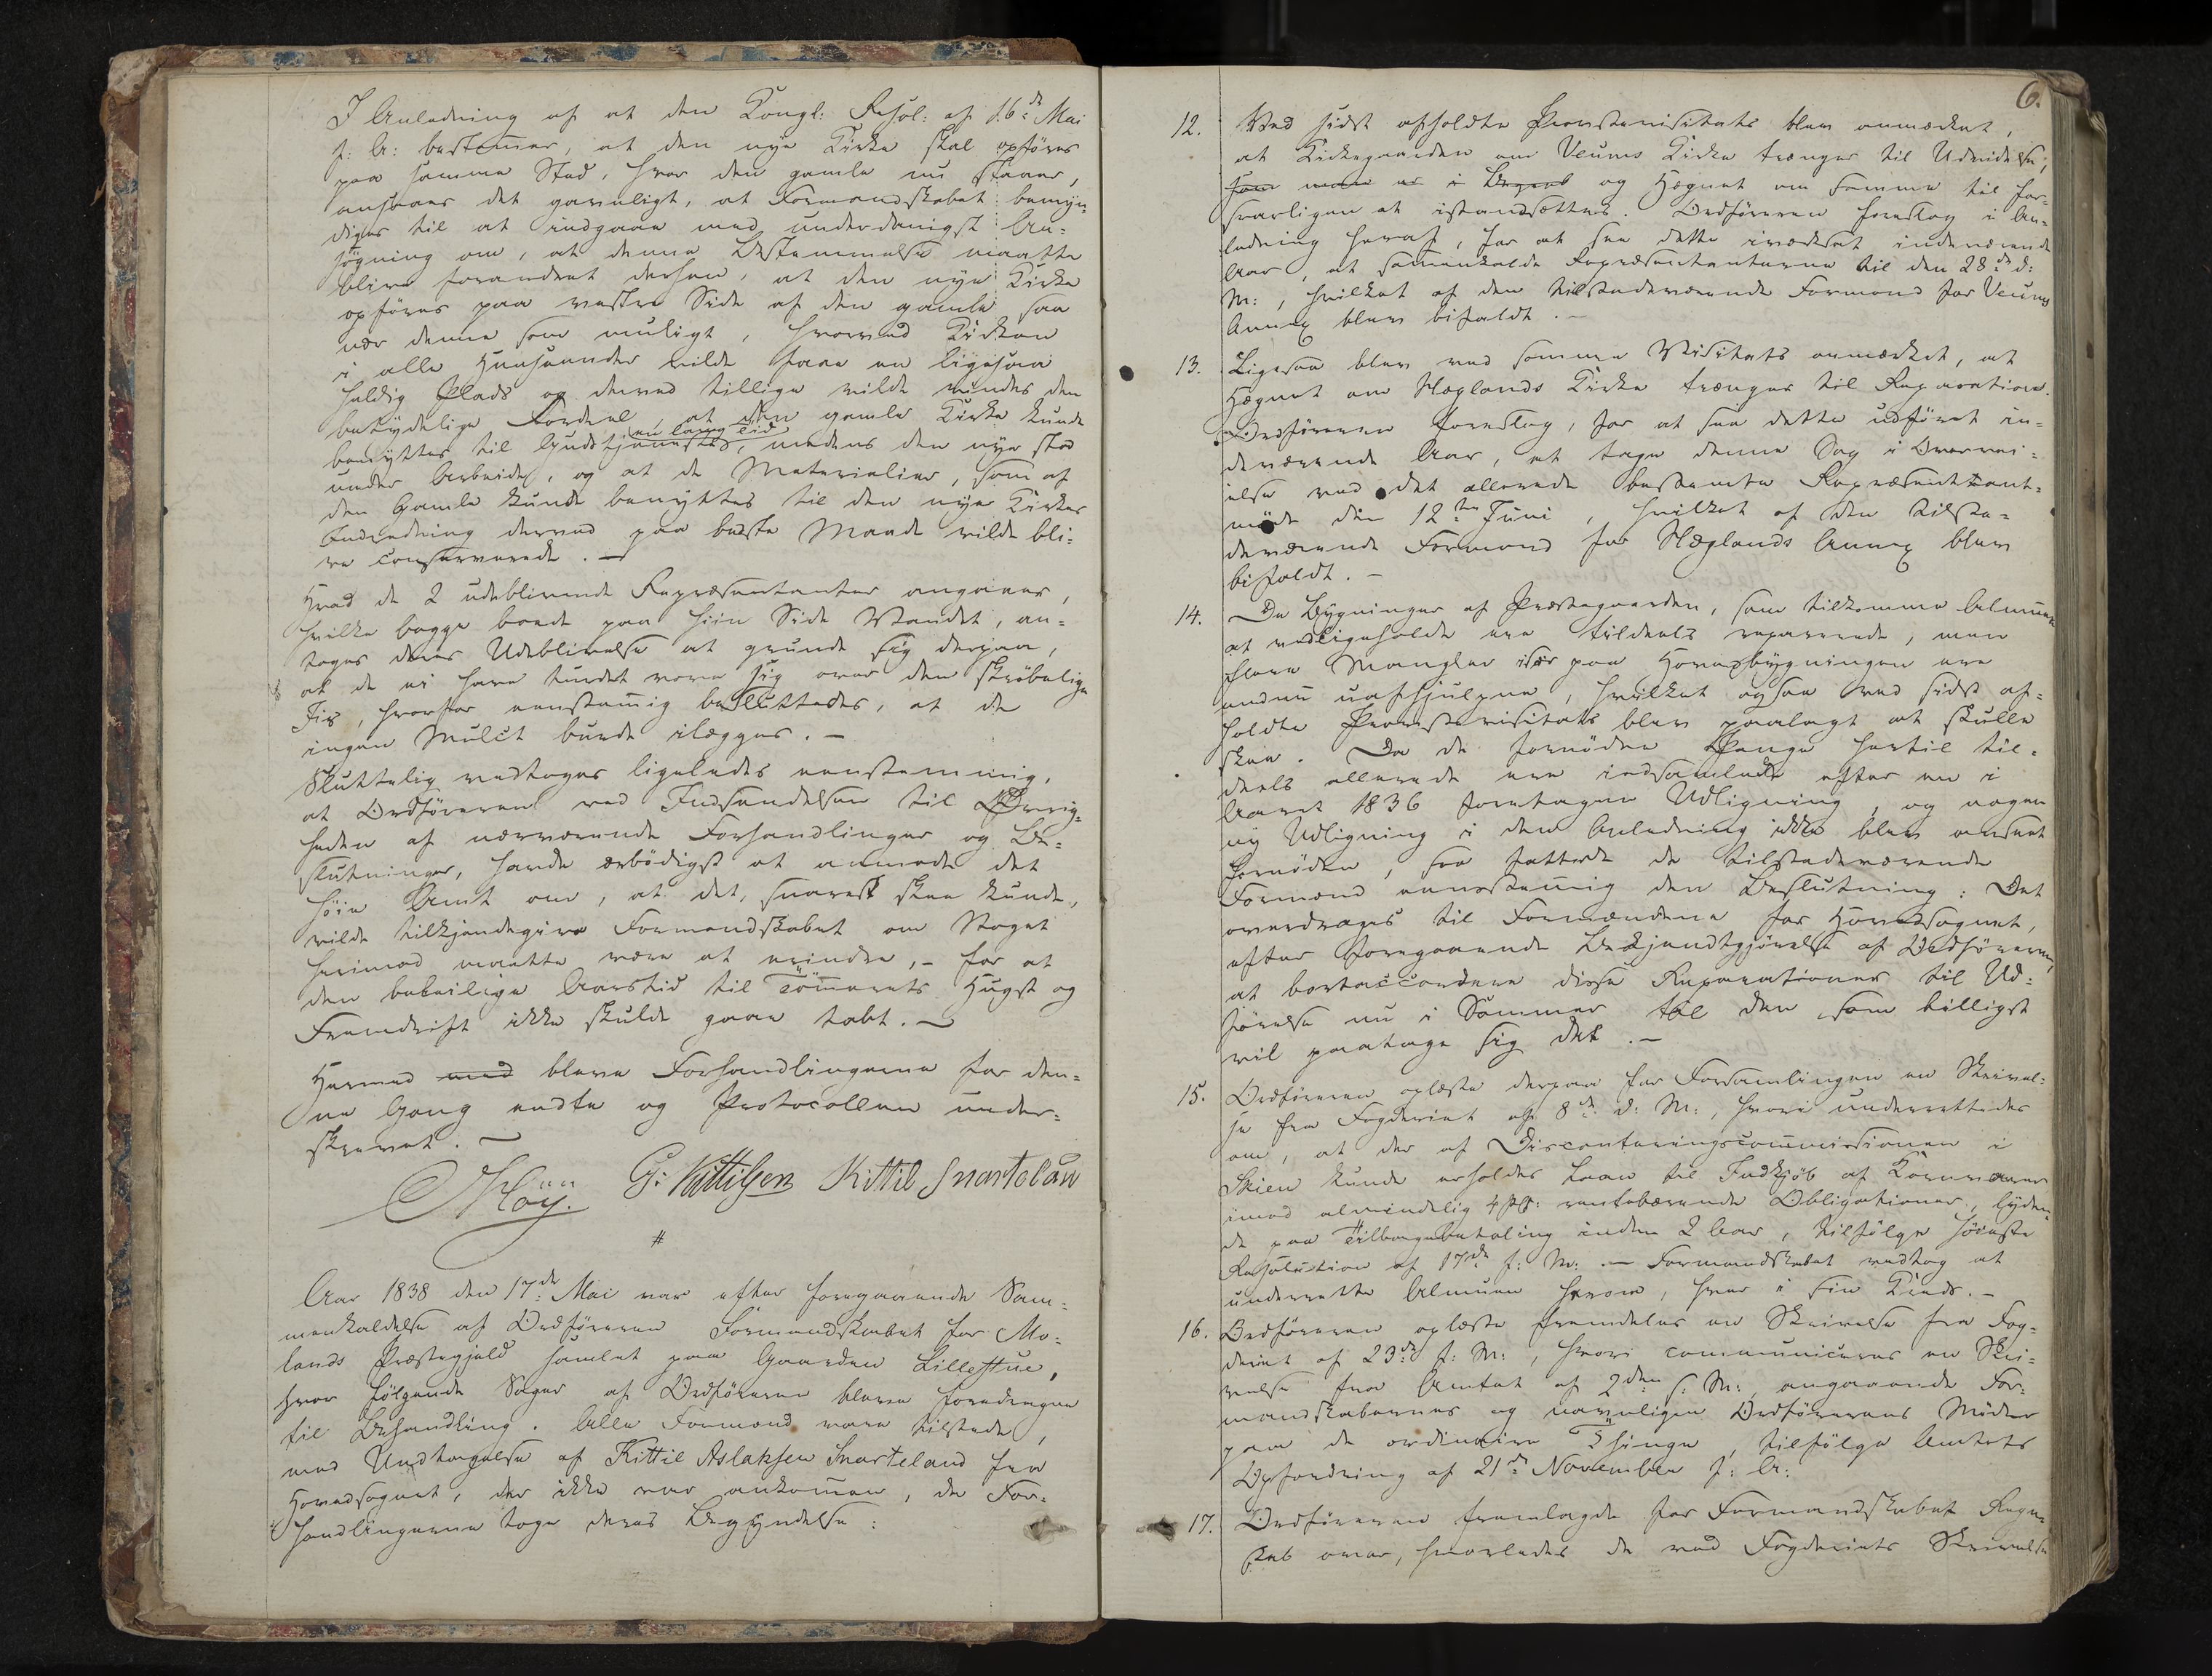 I Anledning af at den Kongl: Resol: af 16de Mai
f: A: bestemmer, at den nye Kirke skal opføres
paa samme Sted, hvor den gamle nu staaer,
ansaaes det gavnligt, at Formandskabet bemyn-
diges til at indgaae med underdanigst An-
søgning om, at denne Bestemmelse maatte
blive forandret derhen, at den nye Kirke
opføres paa vestre Side af den gamle saa
nær denne som muligt, hvorved Kirken
i alle Henseender vilde faae en ligesaa
heldig Plads og derved tillige vilde vindes den
betydelige Fordeel, at den gamle Kirke kunde
en lang Tid
benyttes til Gudstjeneste, medens den nye stod
under Arbeide, og at de Materialier, som af
den Gamle kunde benyttes til den nye Kirkes
Indredning derved paa bedste Maade vilde bli-
ve conserverede. —
Hvad de 2 udeblivende Repræsentanter angaaer,
hvilke begge boede paa hiin Side Vandet, an-
toges deres Udeblivelse at grunde sig derpaa,
at de ei have kundet vove sig over den skrøbelige
Iis, hvorfor eenstemmig besluttedes, at de
ingen Mulct burde ilægges. —
Sluttelig vedtoges ligeledes eenstemmig,
at Ordføreren ved Indsendelsen til Øvrig-
heden af nærværende Forhandlinger og Be-
slutninger, havde ærbødigst at anmode det
høie Amt om, at det, snarest skee kunde,
vilde tilkjendegive Formandskabet om Noget
herimod maatte være at erindre, - for at
den beleilige Aarstid til Tömmerets Hugst og
Fremdrift ikke skulde gaae tabt. —
Hermed med bleve Forhandlingerne for den-
ne Gang endte og Protocollen under-
skrevet. —
Möy. G: Kittilsen Kittil Snartelan
#
Aar 1838 den 17de Mai var efter foregaaende Sam-
menkaldelse af Ordføreren Formandskabet for Mo-
lands Præstegjeld samlet paa Gaarden Lillestue,
hvor følgende Sager af Ordføreren bleve foredragne
til Behandling. Alle Formænd vare tilstede,
med Undtagelse af Kittil Aslaksen Snarteland fra
Hovedsognet, der ikke var ankommen, da For-
handlingerne toge deres Begyndelse:
6.
12. Ved sidst afholdte Provstevisitats blev anmærket,
at Kirkegaarden om Veums Kirke trænger til Udvidelse,
som man er i Begreb og Hegnet om samme til for-
svarligen at istandsættes. Ordføreren foreslog i An-
ledning heraf, for at see dette iværksat indeværende
Aar, at sammenkalde Repræsentanterne til den 28de d:
M:, hvilket af den tilstedeværende Formand for Veums
Annex blev bifaldt. —
13. Ligesaa blev ved samme Visitats anmærket, at
Hegnet om Næslands Kirke trænger til Reparation.
Ordføreren foreslog, for at see dette udført in-
deværende Aar, at tage denne Sag i Overvei-
else ved det allerede bestemte Repræsentant-
möde den 12te Juni, hvilket af den tilste-
deværende Formand for Næslands Annex blev
bifaldt. —
14. De Bygninger af Præstegaarden, som tilkomme Almuen
at vedligeholde ere tildeels reparerede, men
flere Mangler især paa Hovedbygningen ere
endnu uafhjulpne, hvilket ogsaa ved sidst af-
holdte Provstevisitats blev paalagt at skulle
skee. Da de fornødne Penge hertil til-
deels allerede ere indsamlede efter en i
Aaret 1836 foretagen Udligning, og nogen
ny Udligning i den Anledning ikke blev anseet
fornöden, saa fattede de tilstedeværende
Formænd eenstemmig den Beslutning: Det
overdrages til Formændene for Hovedsognet,
efter foregaaende Bekjendtgjørelse af Ordføreren,
at bortaccordere disse Reparationer til Ud-
førelse nu i Sommer til den, som billigst
vil paatage sig det. —
15. Ordføreren oplæste derpaa for Forsamlingen en Skrivel-
se fra Fogderiet af 8de d: M:, hvori underrettedes
om, at der af Disconteringscommissionen i
Skien kunde erholdes Laan til Indkjöb af Kornvarer
imod almindelig 4 pCt: rentebærende Obligationer, lyden-
de paa Tilbagebetaling inden 2 Aar, tilfölge höieste
Resolution af 17de f: M: — Formandskabet vedtog at
underrette Almuen herom, hver i sin Kreds. —
16. Ordføreren oplæste fremdeles en Skrivelse fra Fog-
deriet af 23de f: M:, hvori communiceres en Skri-
velse fra Amtet af 2den s: M:, angaaende For-
mandskabernes og navnligen Ordførerens Møder
paa de ordinaire Thinge, tilfölge Amtets
Opfordring af 21de November f: A:
17. Ordføreren fremlagde for Formandskabet Regn-
skab over, hvorledes de ved Fogderiets Skrivelse